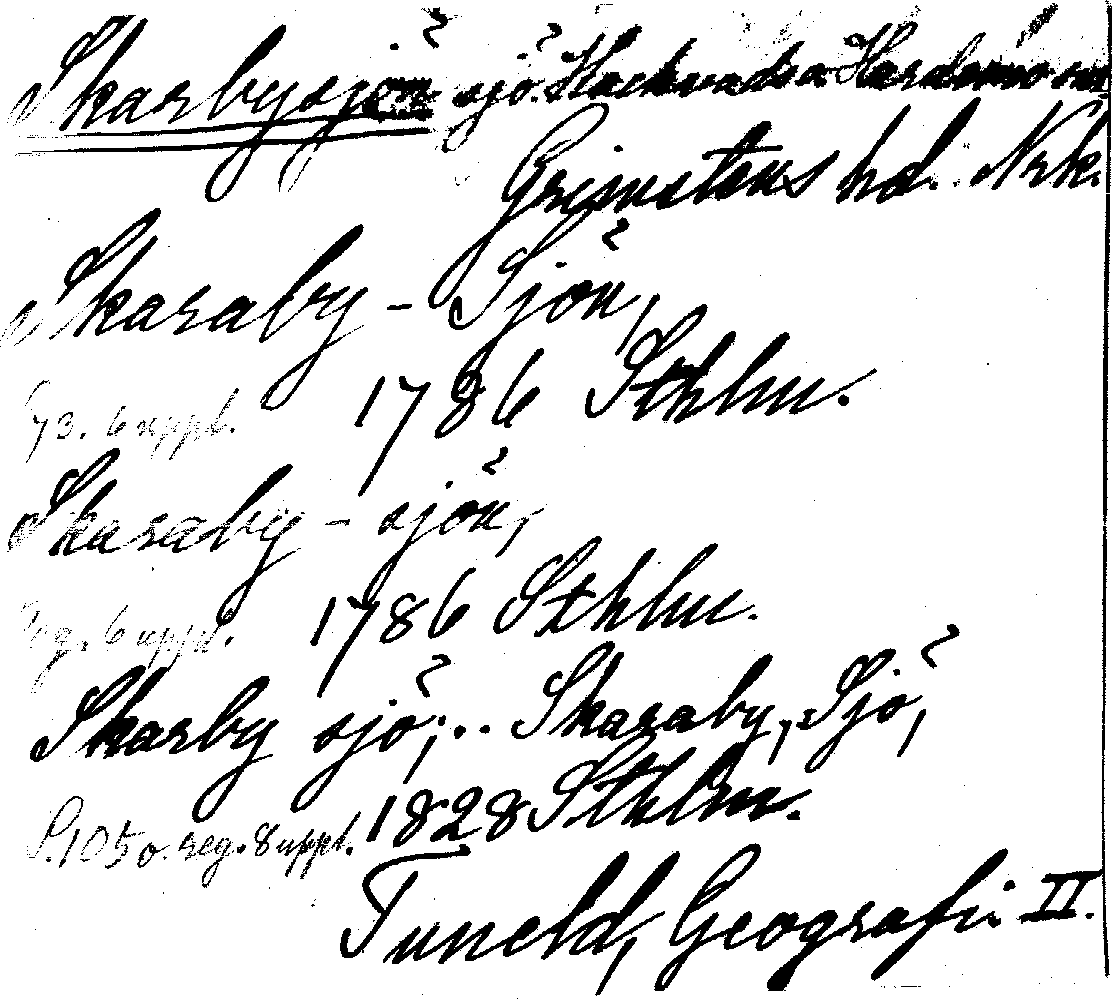 Skarbysjön sjö. Hackvads o Hardemo snr
Grimstens hd. Nrk.
Skaraby - Sjön,
73. 6 uppl. 1786 Sthlm.
Skaraby - sjön,
reg. 6 uppl. 1786 Sthlm.
Skarby sjö;.. Skaraby, Sjö,
S. 105 o. reg. 8 uppl. 1828 Sthlm.
Tuneld, Geografi. II.